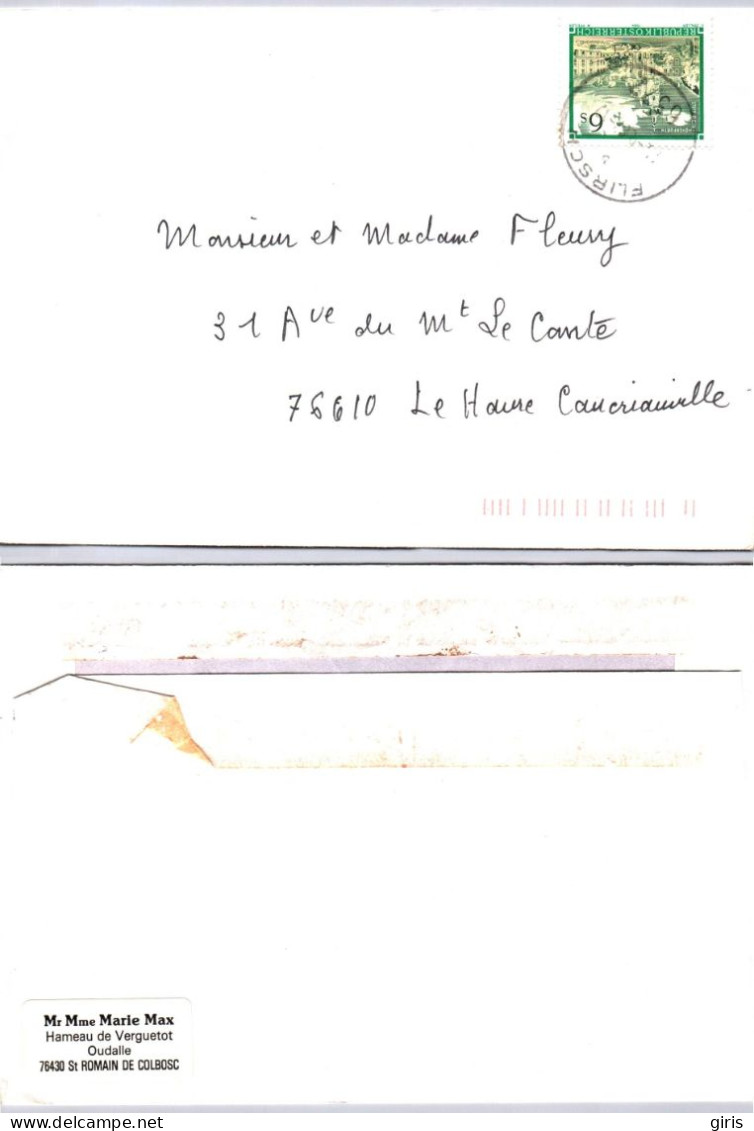 REPUBLIK ÖSTERREICH
6 S
FLIRSCH
Monsieur et Madame Fleury
31 Ave du Mt Le Comte
76610 Le Havre Caucriauville
Mr Mme Marie Max
Hameau de Verguetot
Oudalle
76430 St ROMAIN DE COLBOSC
giris